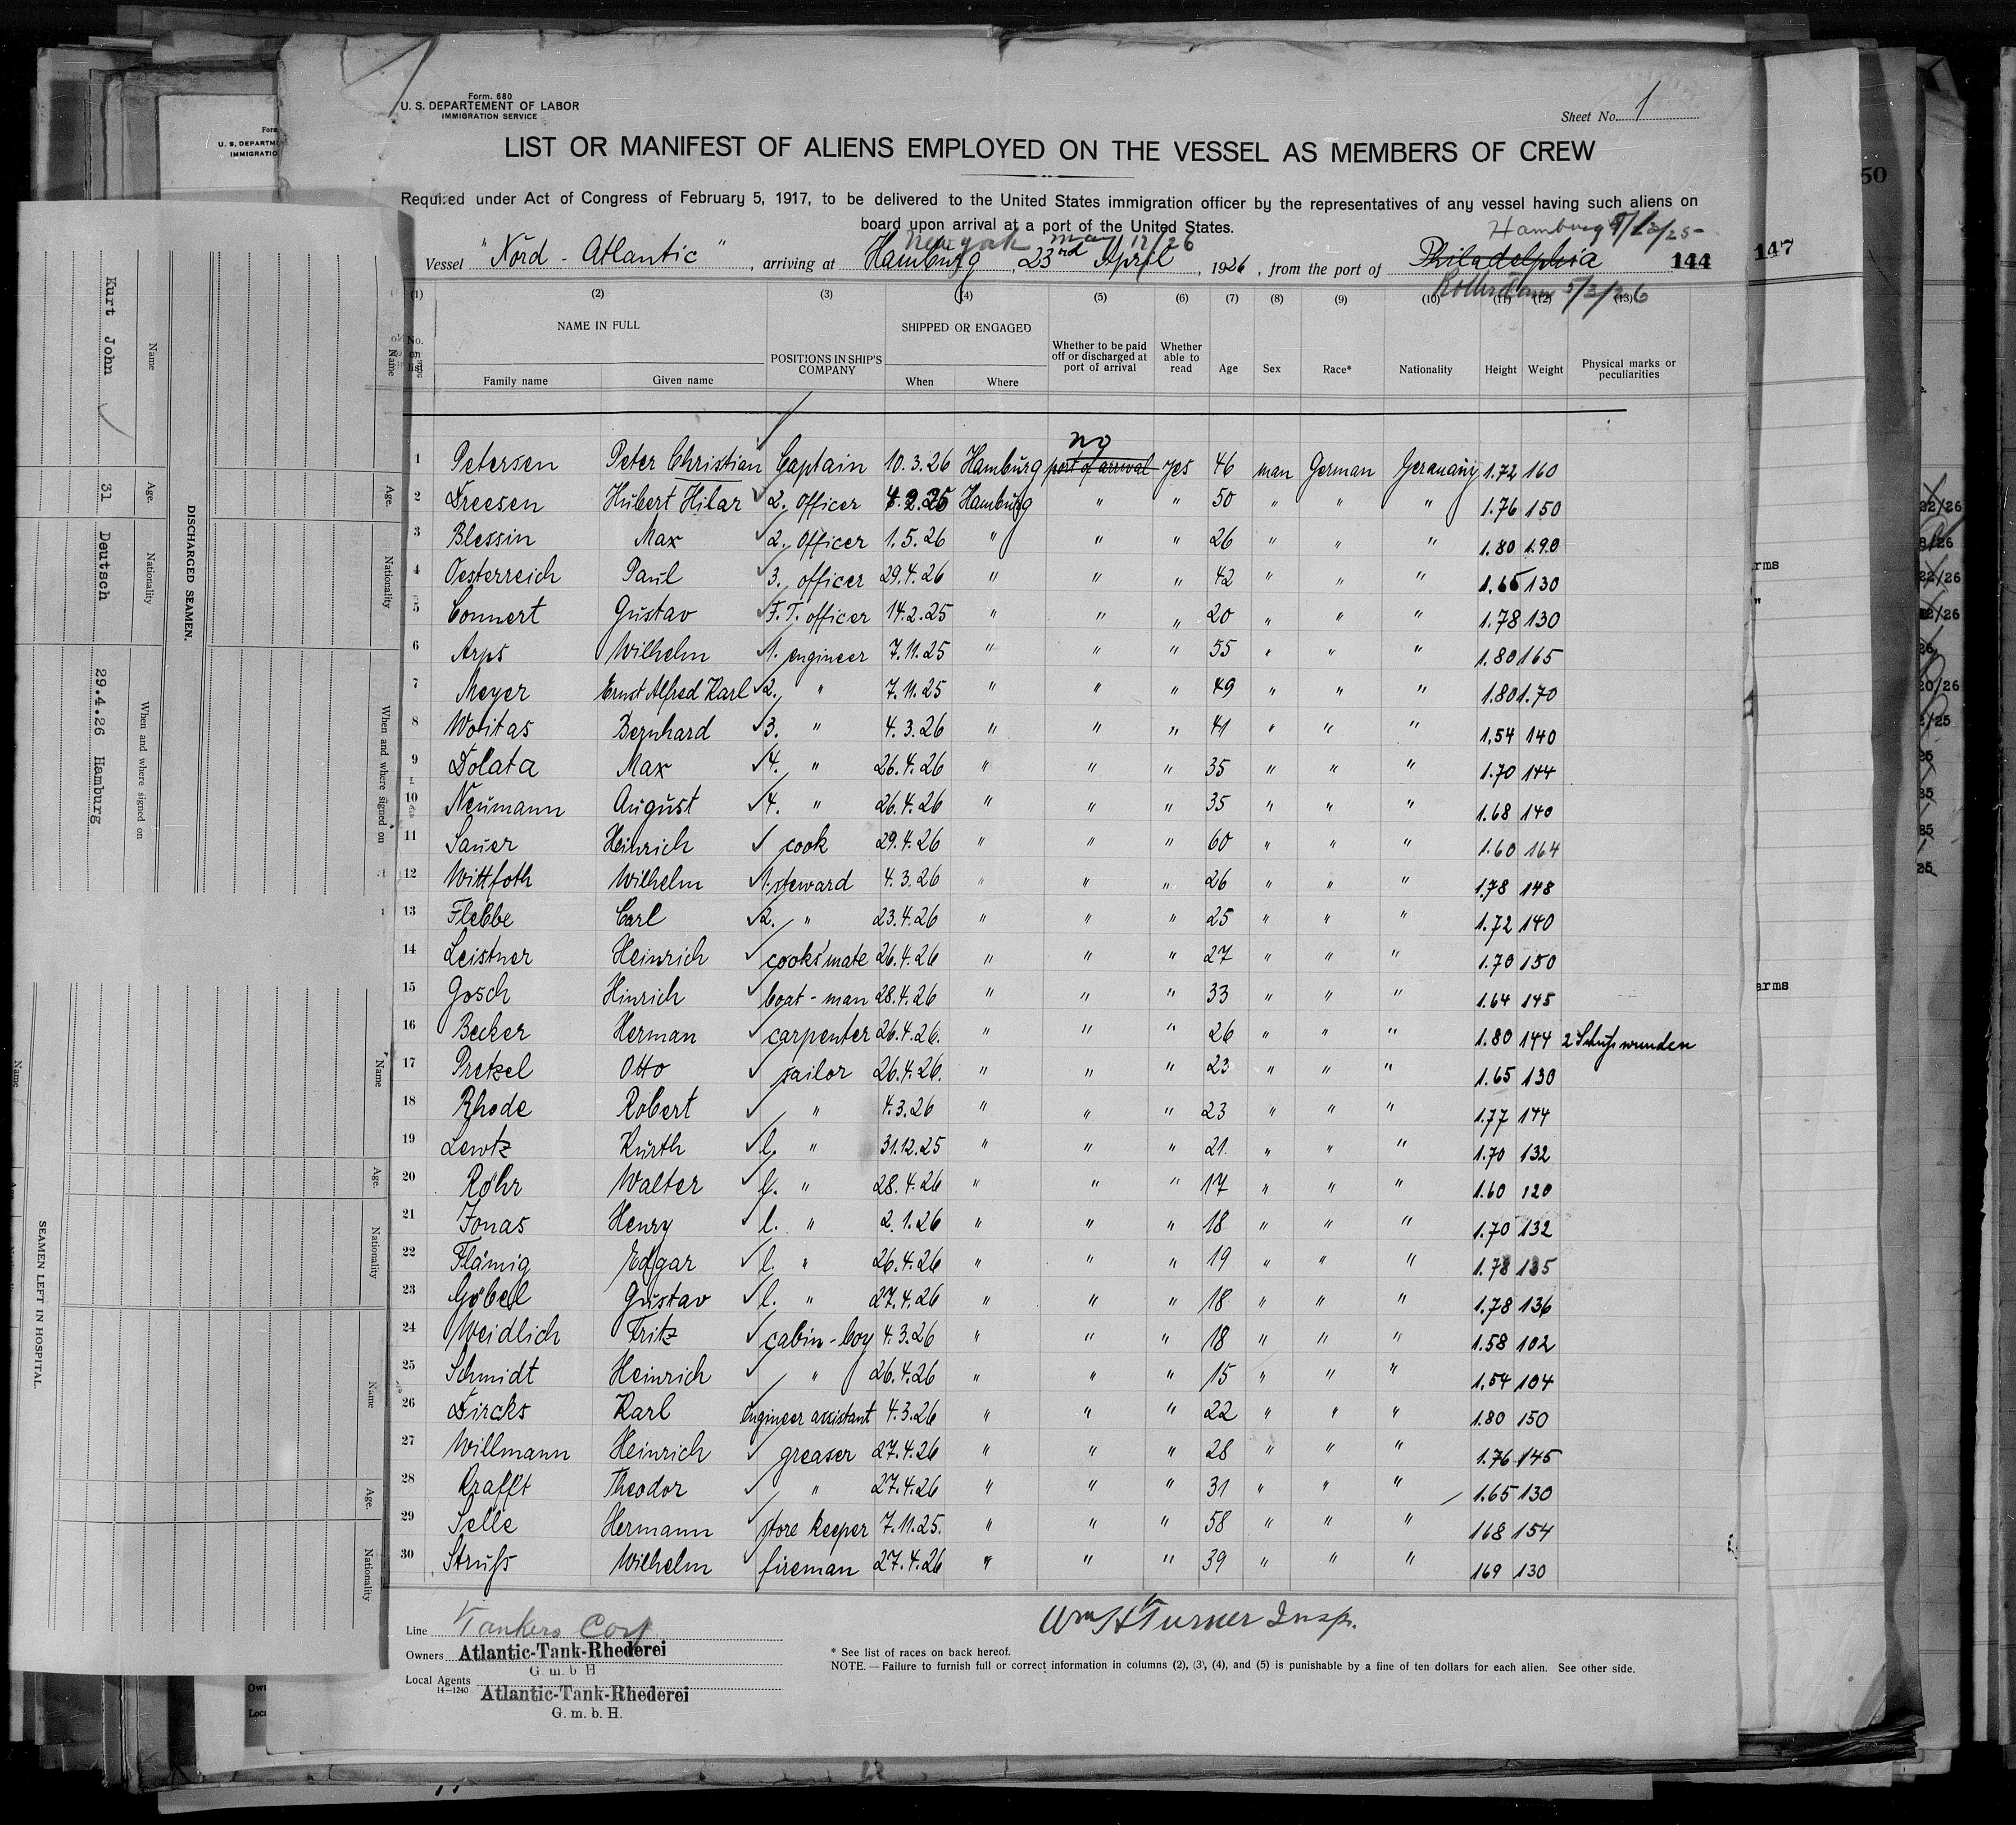 Form. 680
U. S. DEPARTMENT OF LABOR
IMMIGRATION SERVICE
Sheet No. 1
LIST OR MANIFEST OF ALIENS EMPLOYED ON THE VESSEL AS MEMBERS OF CREW
Required under Act of Congress of February 5, 1917, to be delivered to the United States immigration officer by the representatives of any vessel having such aliens on
board upon arrival at a port of the United States.
New York May 12/26
Vessel "Nord-Atlantic", arriving at Hamburg, 23rd April, 1926, from the port of Philadelphia 144
(1) (2) (3) (4) (5) (6) (7) (8) (9) (10) (11) (12) (13)
No. on list NAME IN FULL Family name Given name POSITIONS IN SHIP'S COMPANY SHIPPED OR ENGAGED When Where Whether to be paid off or discharged at port of arrival Whether able to read Age Sex Race* Nationality Height Weight Physical marks or peculiarities
no
1 Petersen Peter Christian Captain 10.3.26 Hamburg port of arrival yes 46 man German Germany 1.72 160
2 Freesen Hubert Hilar 2. Officer Hamburg " " 50 " " " 1.76 150
3 Blessin Max 2. Officer 1.5.26 " " " 26 " " " 1.80 1.90
4 Oesterreich Paul 3. officer 29.4.26 " " " 42 " " " 1.65 130
5 Connert Gustav F.T. officer 14.2.25 " " " 20 " " " 1.78 130
6 Arps Wilhelm 1. engineer 7.11.25 " " " 55 " " " 1.80 165
7 Meyer Ernst Alfred Karl 2. " 7.11.25 " " " 49 " " " 1.80 1.70
8 Woitas Bernhard 3. " 4.3.26 " " " 41 " " " 1.54 140
9 Dolata Max 4. " 26.4.26 " " " 35 " " " 1.70 144
10 Neumann August 4. " 26.4.26 " " " 35 " " " 1.68 140
11 Sauer Heinrich cook 29.4.26 " " " 60 " " " 1.60 164
12 Wittfoth Wilhelm 1. steward 4.3.26 " " " 26 " " " 1.78 148
13 Flebbe Carl 2. " 23.4.26 " " " 25 " " " 1.72 140
14 Leistner Heinrich cooks mate 26.4.26 " " " 27 " " " 1.70 150
15 Gosch Hinrich boat-man 28.4.26 " " " 33 " " " 1.64 145
16 Becker Herman carpenter 26.4.26. " " " 26 " " " 1.80 144 2 Schußwunden
17 Pretzel Otto sailor 26.4.26. " " " 23 " " " 1.65 130
18 Rhode Robert " 4.3.26 " " " 23 " " " 1.77 144
19 Lewtz Kurth l. " 31.12.25 " " " 21 " " " 1.70 132
20 Röhr Walter l. " 28.4.26 " " " 17 " " " 1.60 120
21 Jonas Henry l. " 2.1.26 " " " 18 " " " 1.70 132
22 Flämig Edgar l. " 26.4.26 " " " 19 " " " 1.78 135
23 Göbel Gustav l. " 27.4.26 " " " 18 " " " 1.78 136
24 Weidlich Fritz cabin-boy 4.3.26 " " " 18 " " " 1.58 102
25 Schmidt Heinrich " 26.4.26 " " " 15 " " " 1.54 104
26 Dircks Karl Engineer assistant 4.3.26 " " " 22 " " " 1.80 150
27 Willmann Heinrich greaser 27.4.26 " " " 28 " " " 1.76 145
28 Krafft Theodor " 27.4.26 " " " 31 " " " 1.65 130
29 Selle Hermann store keeper 7.11.25. " " " 58 " " " 168 154
30 Struß Wilhelm fireman 27.4.26 " " " 39 " " " 169 130
Line Tankers Corp
Owners Atlantic-Tank-Rhederei
G. m. b H
Local Agents Atlantic-Tank-Rhederei
14-1240
G. m. b. H.
Wm H Turner Insp.
* See list of races on back hereof.
NOTE.—Failure to furnish full or correct information in columns (2), (3), (4), and (5) is punishable by a fine of ten dollars for each alien. See other side.
Hamburg
Rotterdam 5/3/26
DISCHARGED SEAMEN.
Name Age. Nationality When and where signed on
Kurt John 31 Deutsch 29.4.26 Hamburg
Name Age. Nationality When and where signed on
SEAMEN LEFT IN HOSPITAL.
Name Age. Nationality
Name Age. Nationality
147
50